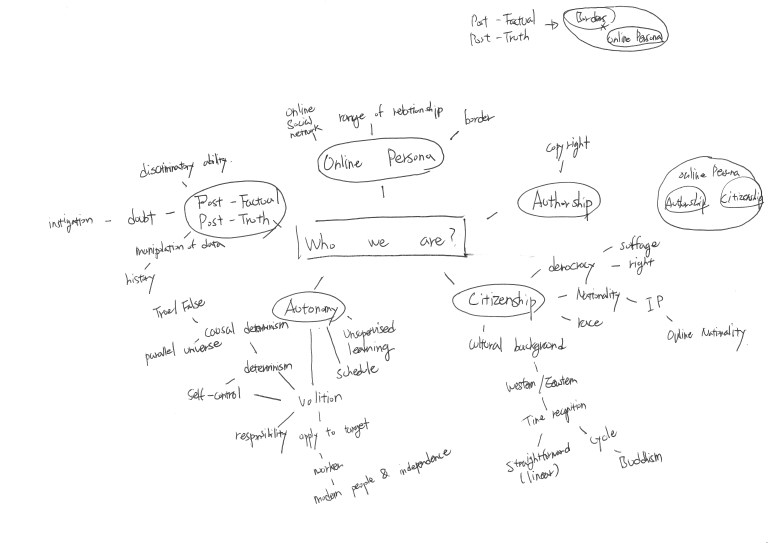 Post - Factual
Post - Truth
Borders
Online Persona
Online
Social
network
range of relationship
border
Online Persona
discriminatory ability.
copyright
Authorship
Post - Factual
Post - Truth
instigation - doubt -
manipulation of data
history
Who we are?
Online Persona
Authorship
Citizenship
Autonomy
Citizenship
democracy
suffage
right
Nationality
IP
Online Nationality
race
True/False
causal determinism
parallel universe
determinism
Self-control
Volition
Unsupervised
learning
schedule
responsibility
apply to target
worker
modern people & independence
Cultural background
Western/Eastern
Time recognition
Straightforward
(linear)
cycle
Buddism